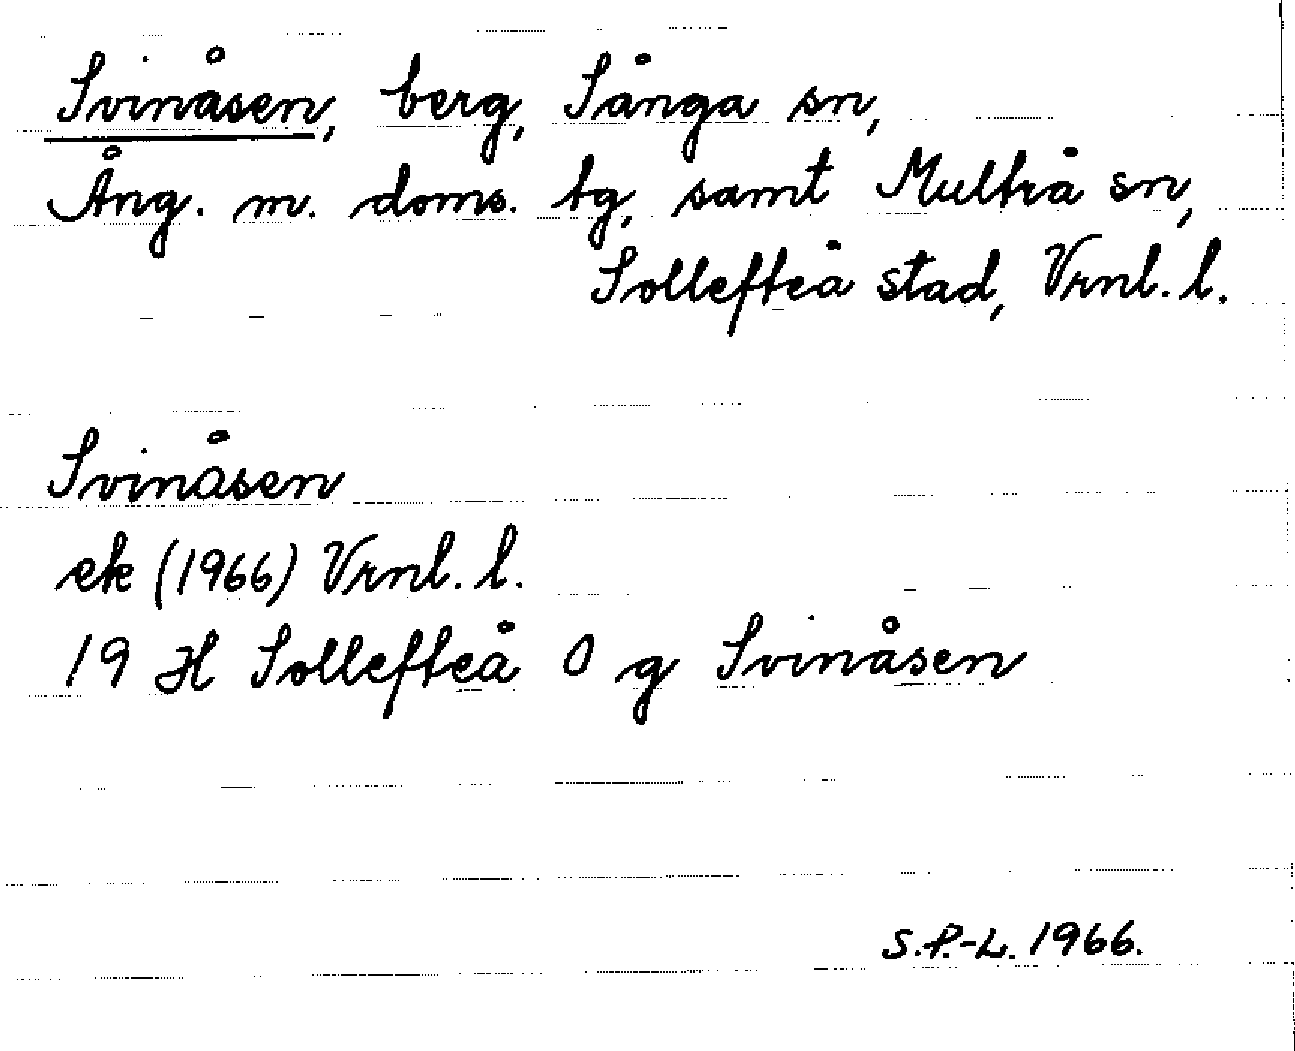 Svinåsen, berg, Sånga sn,
Ång. m. doms. tg, samt Multrå sn,
Sollefteå stad, Vrnl. l.
Svinåsen
ek (1966) Vrnl. l.
19 H Sollefteå O g Svinåsen
S.P.-L. 1966.